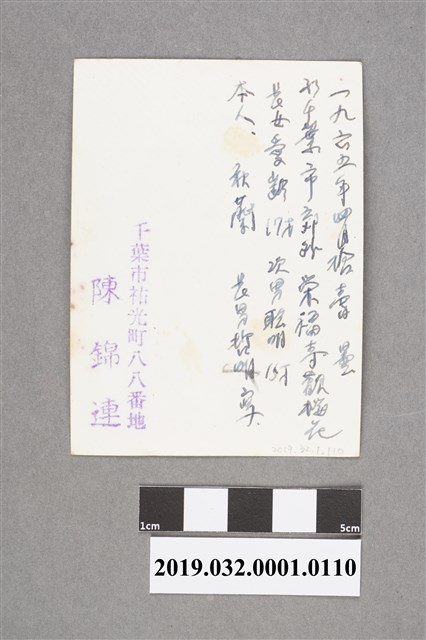 一九六五年四月拾壹 曇
於千葉市郊外 榮福亭觀櫻花
長女愛 17才 次男聰明 15才
本人、 秋蘭 長男哲明寫.
千葉市祐光町八八番地
陳錦連
1cm
5cm
2019.032.0001.0110